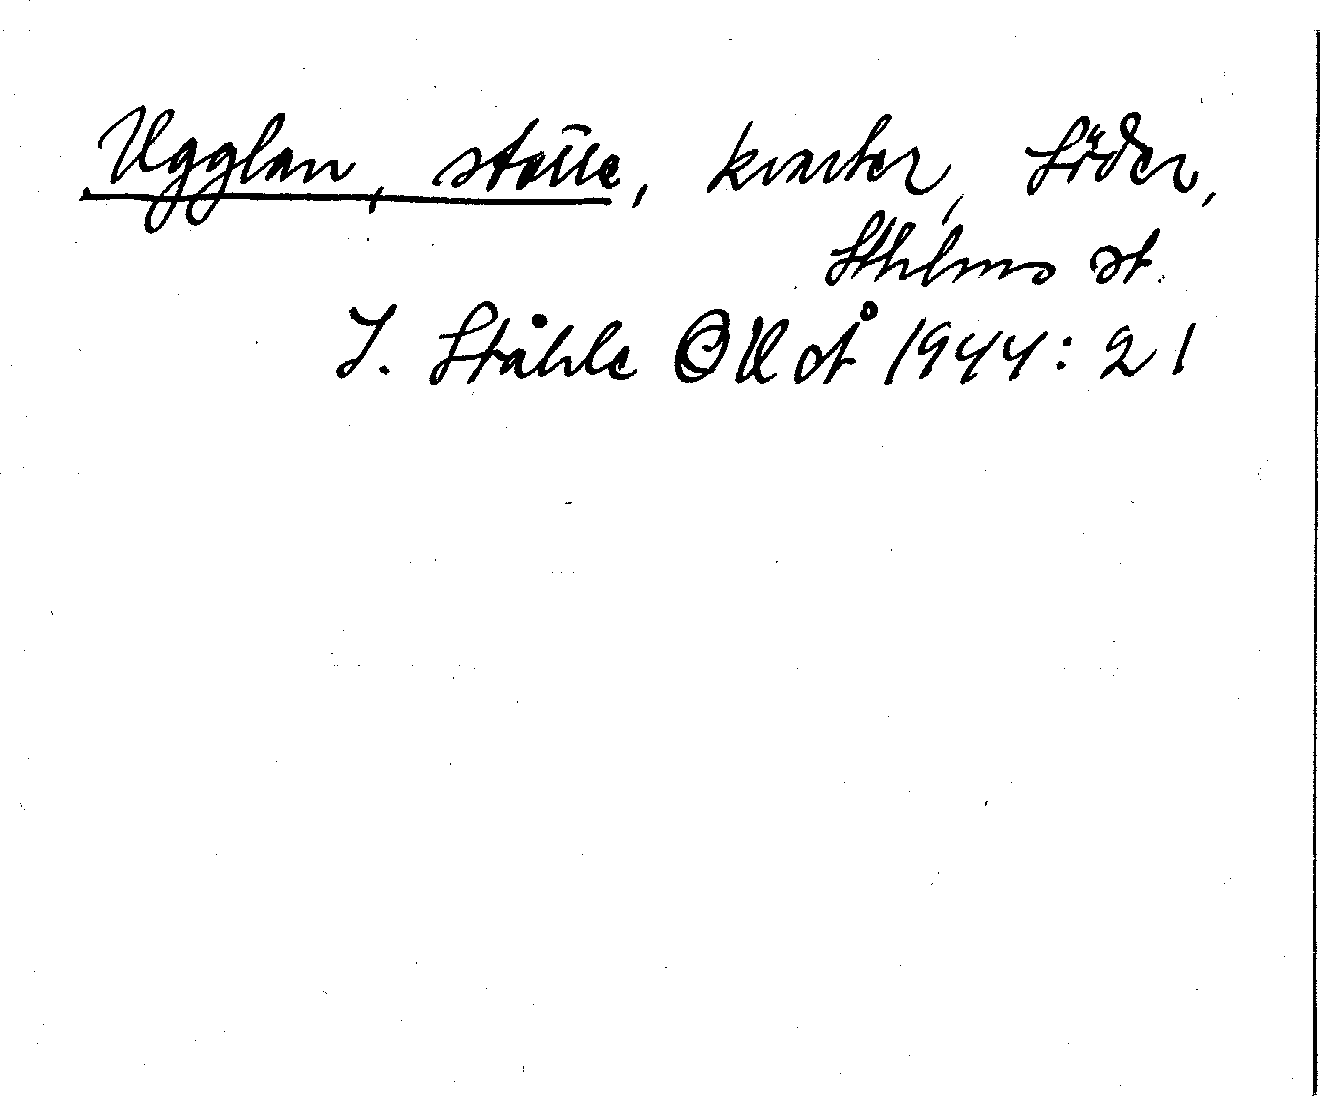 Ugglan, större, kvarter, Söder,
Sthlms st.
I. Ståhle OUÅ 1944: 21